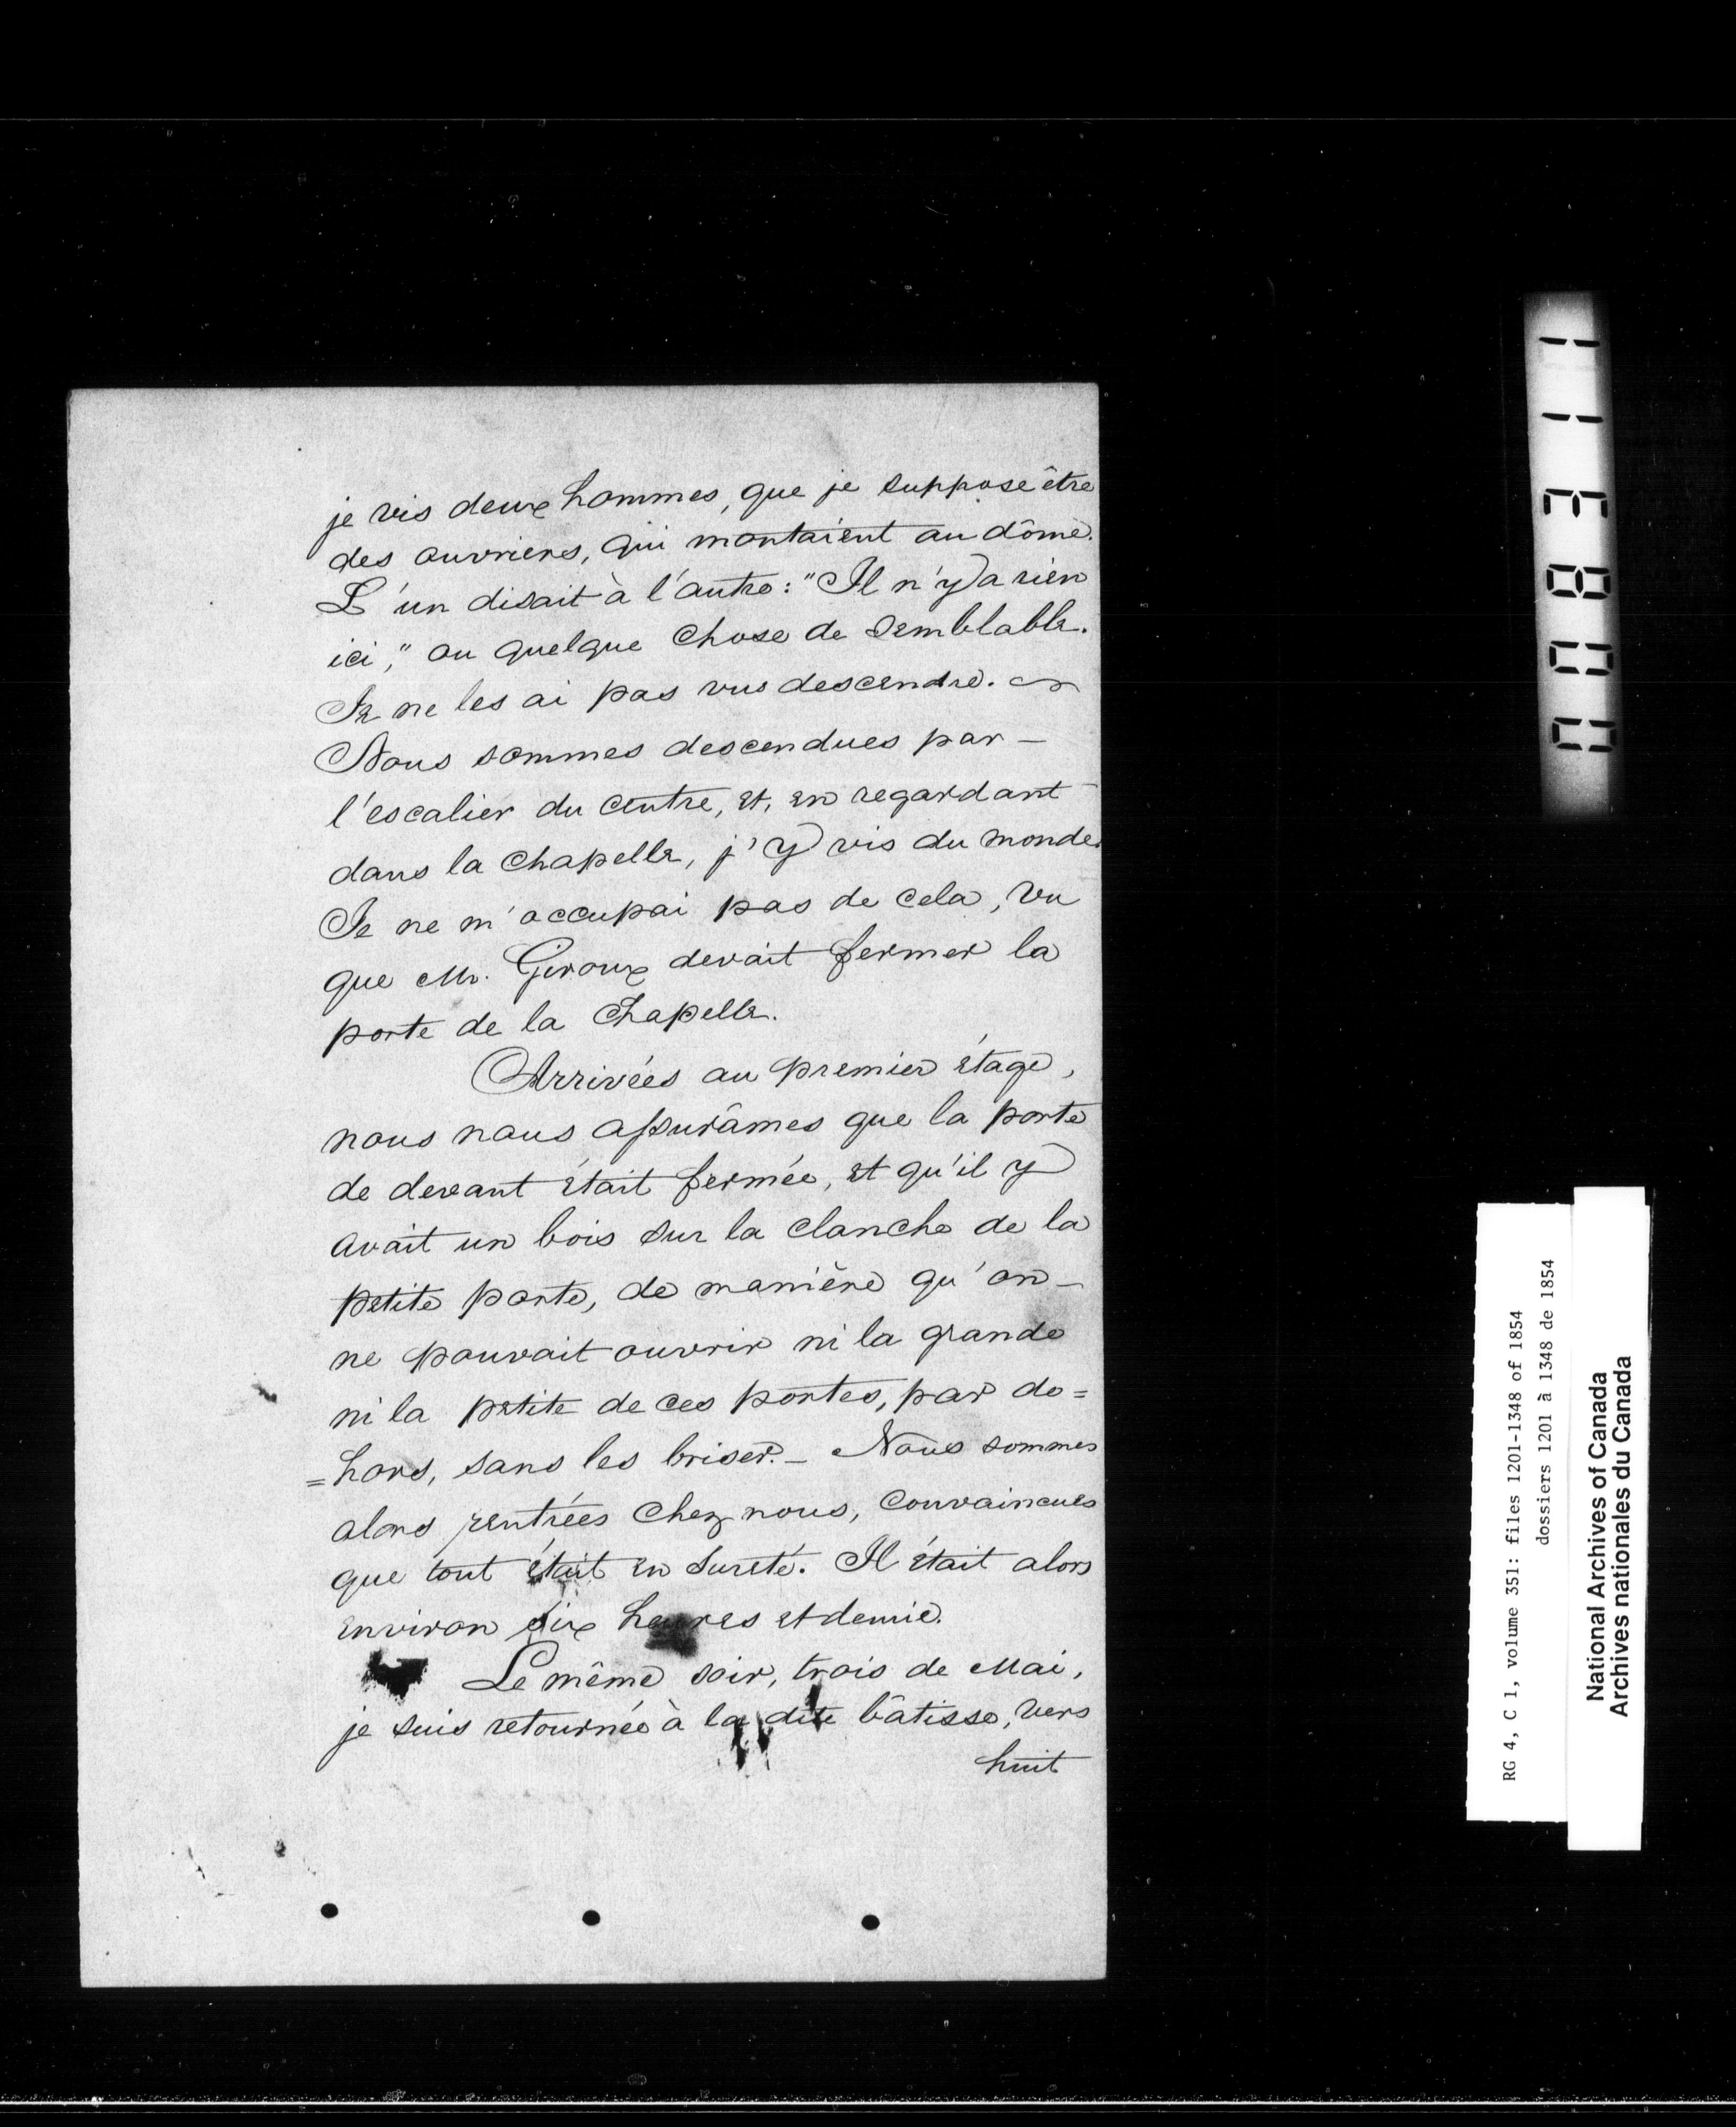 je vis deux hommes, que je suppose être
des ouvriers, qui montaient au dôme.
L'un disait à l'autre: "Il n'y a rien
ici," ou quelque chose de semblable.
Je ne les ai pas vus descendre.
Nous sommes descendues par –
l'escalier du centre, et, en regardant
dans la chapelle, j'y vis du monde.
Je ne m'occupai pas de cela, vu
que Mr. Giroux devait fermer la
porte de la Chapelle.
Arrivées au premier étage,
nous nous assurâmes que la porte
de devant était fermée, et qu'il y
avait un bois sur la clanche de la
petite porte, de manière qu'on –
ne pouvait ouvrir ni la grande
ni la petite de ces portes, par de=
=hors, sans les briser. – Nous sommes
alors rentrées chez nous, convaincues
que tout était en sureté. Il était alors
environ six heures et demie.
Le même soir, trois de Mai,
je suis retournée à la dite bâtisse, vers
huit
113800
RG 4, C 1, volume 351: files 1201-1348 of 1854
dossiers 1201 à 1348 de 1854
National Archives of Canada
Archives nationales du Canada